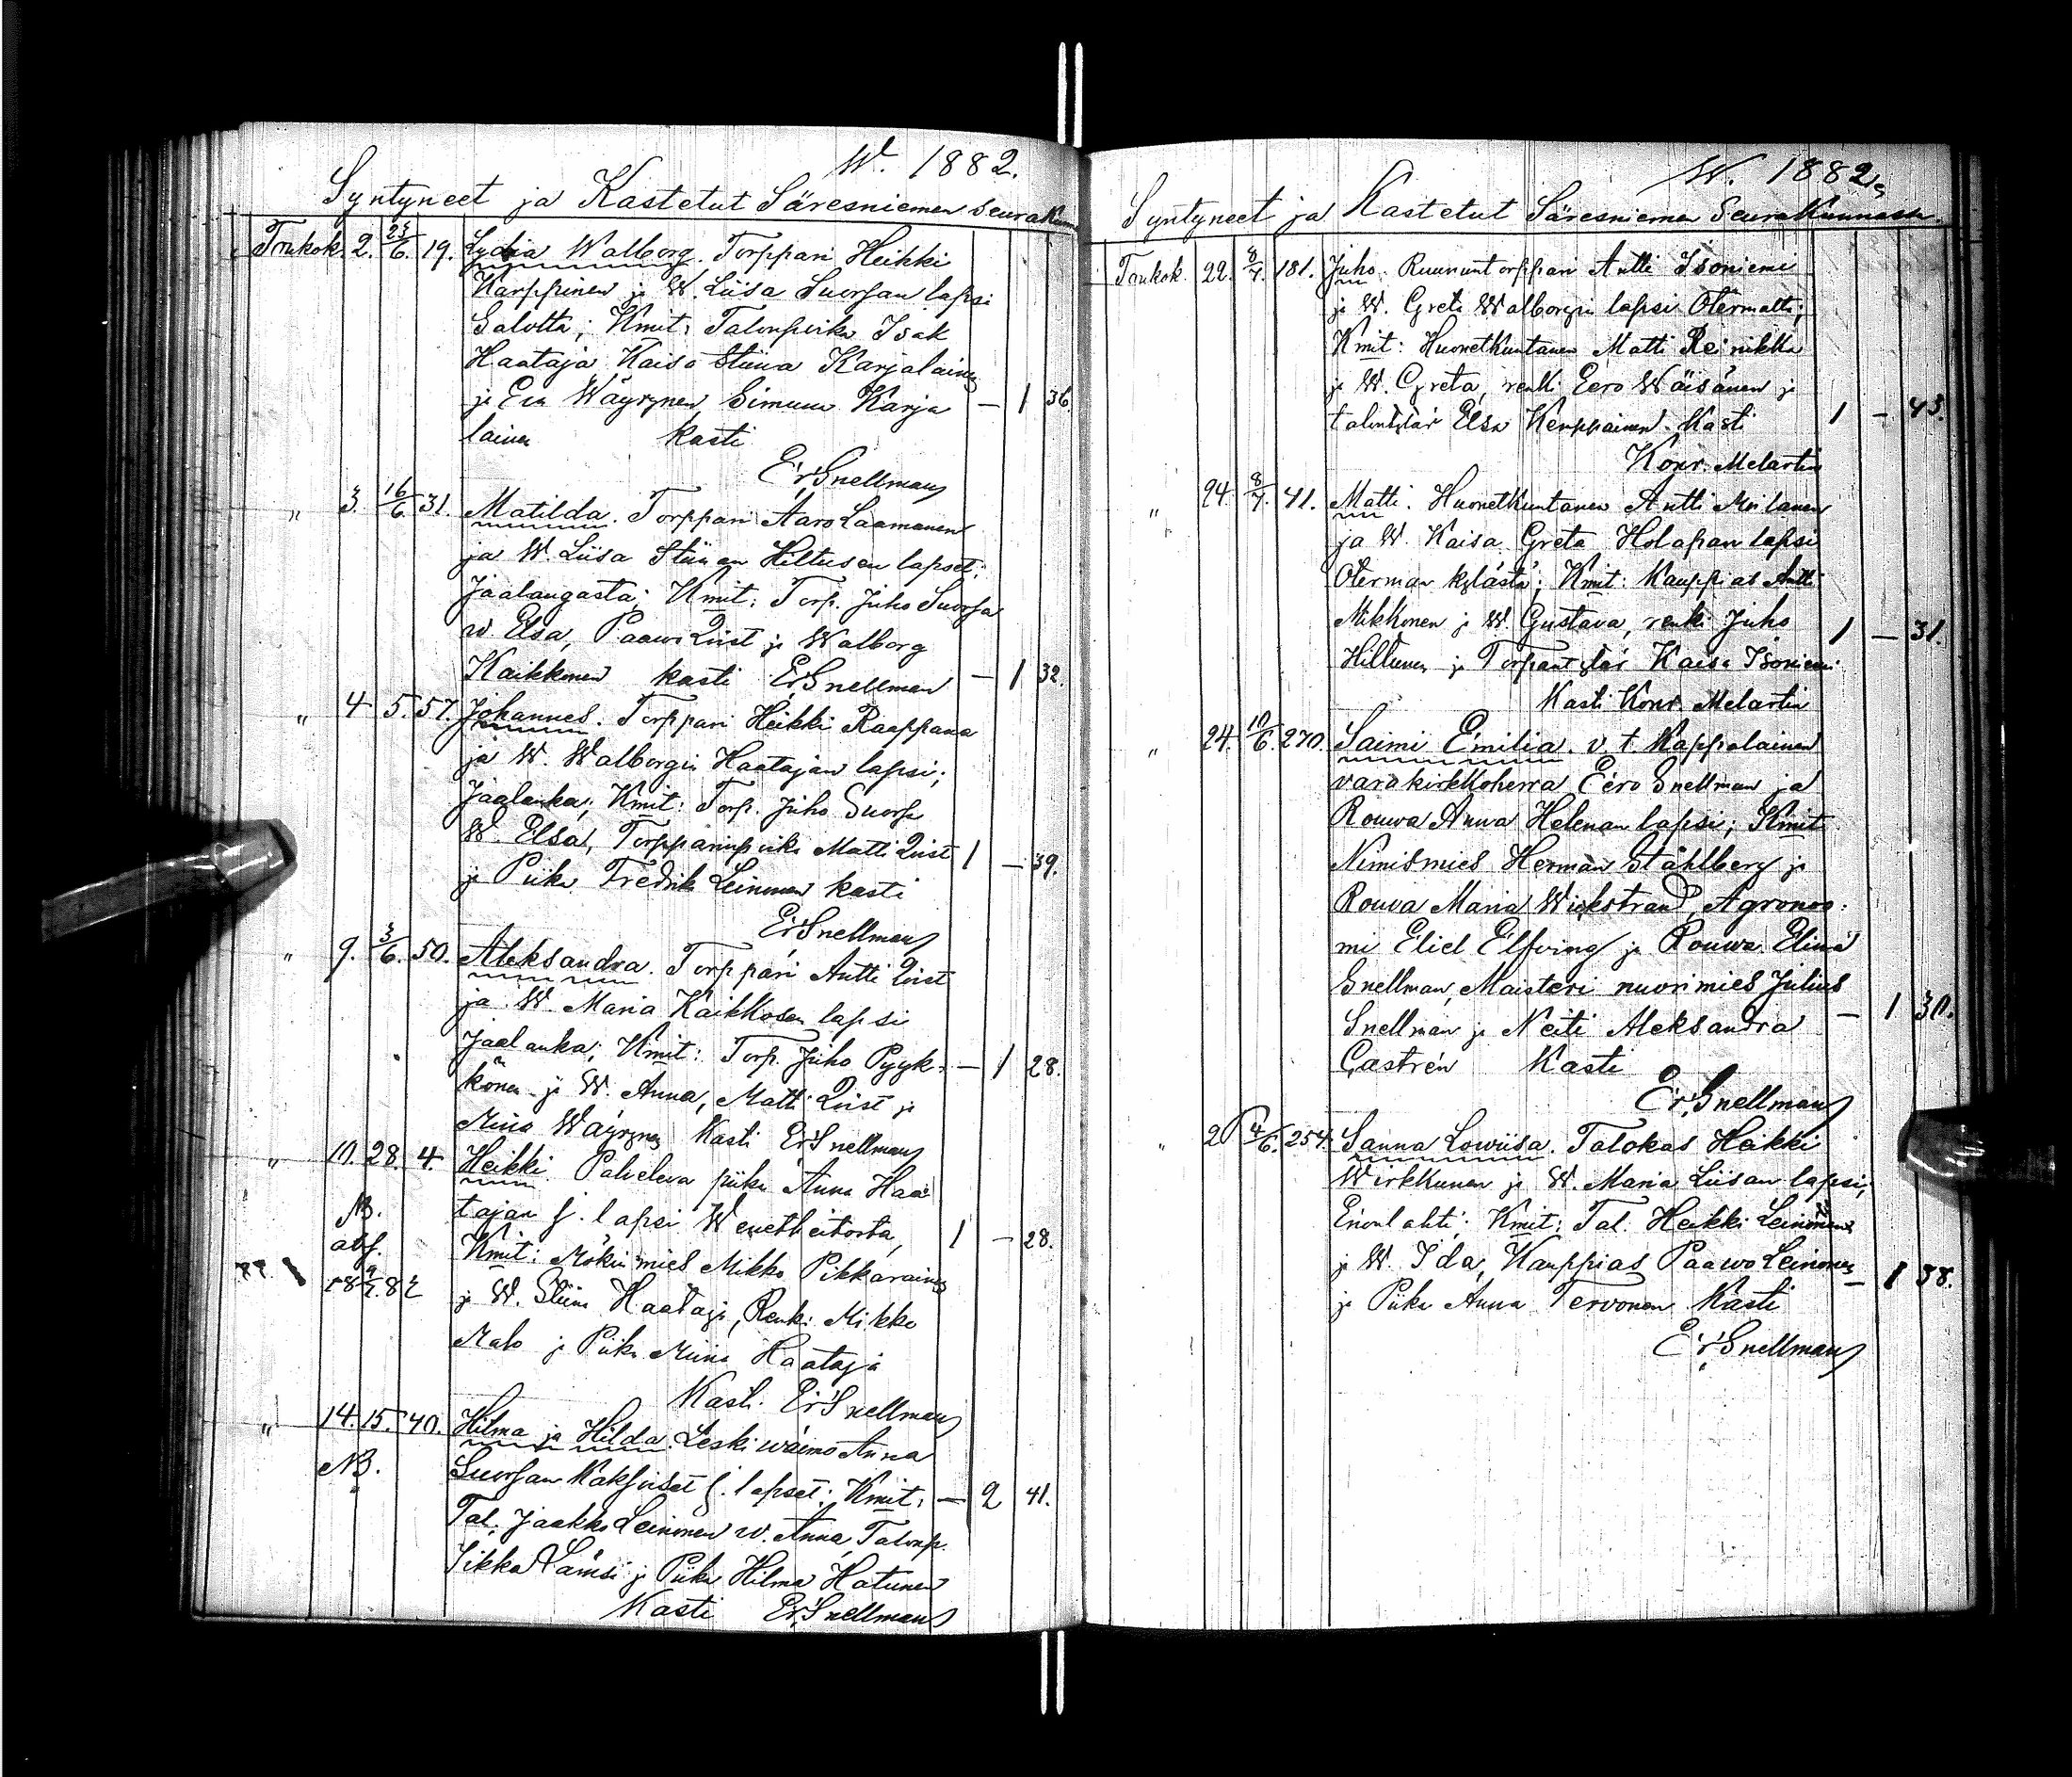 W. 1882.
Syntyneet ja Kastetut Säresniemen Seurakun
Toukok. 2. 23/6. 19. Lydia Walborg. Torppari Heikki
Karppinen ja W. Liisa Suorsan lapsi
Salotta; Kmit: Talonpoika Isak
Haataja Kaisa Stiina Karjalainen
ja Eva Wäyrynen, Simuna Karja — 1 36.
lainen kasti
Er. Snellman
" 3. 16/6. 31. Matilda. Torppari Aaro Laamanen
ja W. Liisa Stiinan Hiltusen lapset;
Jaalangasta; Kmit: Torp. Juho Suorsa
w. Elsa, Paavo Qvist ja Walborg
Kaikkonen kasti Er. Snellman — 1 32.
" 4 5. 57. Johannes. Torppari Heikki Raappana
ja W. Walborgin Haatajan lapsi;
Jaalanka; Kmit: Torp. Juho Suorsa
W. Elsa, Torpparinpoika Matti Qvist 1 — 39.
ja Piika Fredrik Leinonen kasti
Er. Snellman
" 9. 3/6. 50. Aleksandra. Torppari Antti Qvist
ja W. Maria Kaikkosen lapsi
Jaalanka; Kmit: Torp. Juho Pyyk- — 1 28.
könen ja W. Anna, Matti Qvist ja
Miina Wäyrynen Kasti Er. Snellman
" 10. 28. 4. Heikki. Palveleva piika Anna Haa
NB. tajan f. lapsi Wenetheitosta, 1 — 28.
abf. Kmit: Mökinmies Mikko Pikkarainen
18 9/7 82 ja W. Stiina Haataja, Renki Mikko
Malo ja Piika Miina Haataja
Kasti. Er. Snellman
" 14. 15. 40. Hilma ja Hilda. Leskiwaimo Anna
NB. Suorsan Kaksoiset f. lapset; Kmit: — 2 41.
Tal. Jaakko Leinonen w. Anna, Talonp.
Iikka Lämsä ja Piika Hilma Hatunen
Kasti Er. Snellman
W. 1882.
Syntyneet ja Kastetut Säresniemen Seurakunnassa.
Toukok. 22. 8/7. 181. Juho. Ruununtorppari Antti Isoniemi
ja W. Greta Walborgin lapsi Otermalti;
Kmit: Huonetkuntanen Matti Reinikka
ja W. Greta, renki Eero Wäisänen ja
talontytär Elsa Kemppainen. Kasti 1 — 43.
Konr. Melartin
" 24. 8/7. 41. Matti. Huonetkuntanen Antti Moilanen
ja W. Kaisa Greta Holapan lapsi
Oterman kylästä; Kmit: Kauppias Antti
Mikkonen ja W. Gustava, renki Juho 1 — 31.
Hiltunen ja Torpantytär Kaisa Isoniemi
Kasti Konr. Melartin
" 24. 10/6. 270. Saimi Emilia. v. t. Kappalainen
varakirkkoherra Eero Snellman ja
Rouva Anna Helenan lapsi; Kmit
Nimismies Herman Ståhlberg ja
Rouva Maria Wickstrand, Agronoo-
mi Eliel Elfving ja Rouwa Elina
Snellman, Maisteri nuorimies Julius
Snellman ja Neiti Aleksandra — 1 30.
Castrén Kasti
Er. Snellman
" 4/6. 254. Sanna Lowiisa. Talokas Heikki
Wirkkunen ja W. Maria Liisan lapsi;
Enonlahti; Kmit: Tal. Heikki Leinonen
ja W. Ida, Kauppias Paawo Leinonen
ja Piika Anna Tervonen Kasti — 1 38.
Er. Snellman